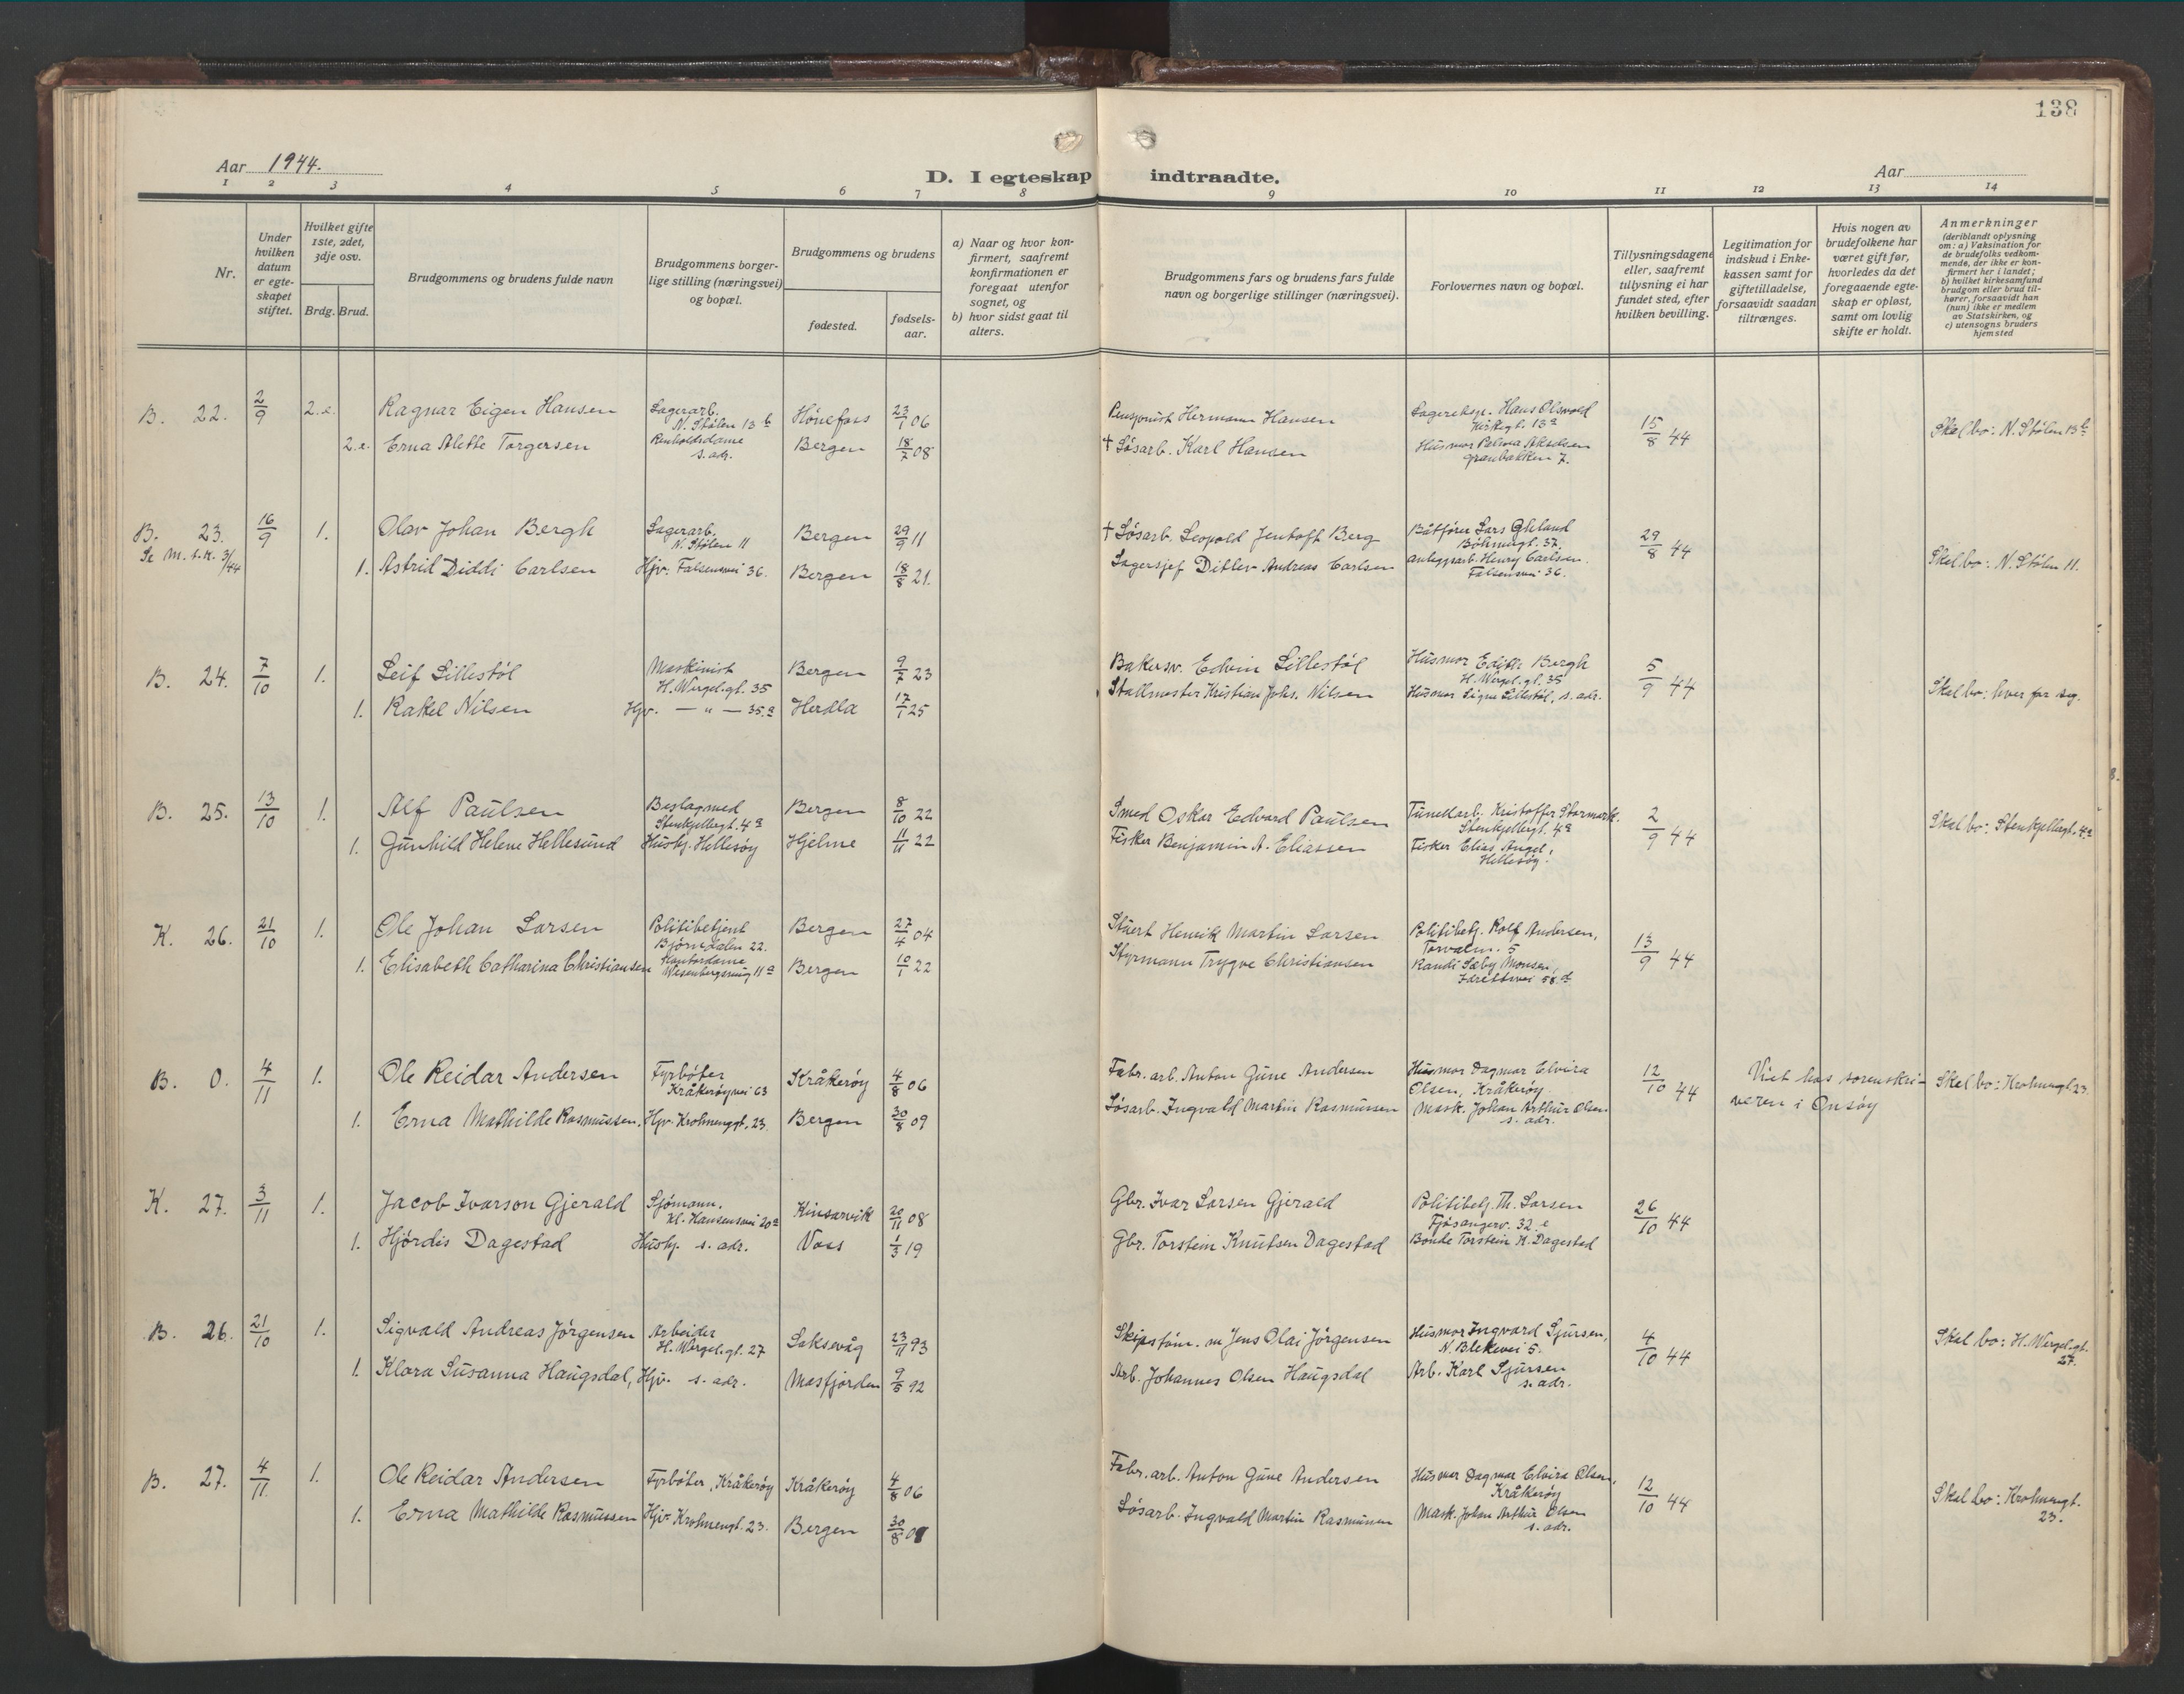 138
Aar 1944.
D. I egteskap indtraadte.
Aar
1 2 3 4 5 6 7 8 9 10 11 12 13 14
Nr.
Under hvilken datum er egteskapet stiftet.
Hvilket gifte 1ste, 2det, 3dje osv.
Brdg. Brud.
Brudgommens og brudens fulde navn
Brudgommens borgerlige stilling (næringsvei) og bopæl.
Brudgommens og brudens
fødested.
fødselsaar.
a) Naar og hvor konfirmert, saafremt konfirmationen er foregaat utenfor sognet, og
b) hvor sidst gaat til alters.
Brudgommens fars og brudens fars fulde navn og borgerlige stillinger (næringsvei).
Forlovernes navn og bopæl.
Tillysningsdagene eller, saafremt tillysning ei har fundet sted, efter hvilken bevilling.
Legitimation for indskud i Enkekassen samt for giftetilladelse, forsaavidt saadan tiltrænges.
Hvis nogen av brudefolkene har været gift før, hvorledes da det foregaaende egteskap er opløst, samt om lovlig skifte er holdt.
Anmerkninger
(deriblandt oplysning om: a) Vaksination for de brudefolks vedkommende, der ikke er konfirmert her i landet; b) hvilket kirkesamfund brudgom eller brud tilhører, forsaavidt han (hun) ikke er medlem av Statskirken, og c) utensogns bruders hjemsted
B. 22. 2/9 2.e. Ragnar Eigen Hansen Lagerarb. N. Stølen 13 b Hönefoss 23/1 06 Pensjonist Hermann Hansen Lagereksp. Hans Olsvold Kirkegt. 13a 15/8 44 Skal bo: N. Stølen 13b
2.e. Erna Alette Torgersen Renholdsdame s. adr. Bergen 18/7 08 † Løsarb. Karl Hansen Husmor Akselsen Granbakken 7.
B. 23. 16/9 1. Olav Johan Bergh Lagerarb. N. Stølen 11 Bergen 29/9 11 † Løsarb. Leopold Jentoft Berg Båtfører Lars Böhmergt. 37. 29/8 44 Skal bo: N. Stølen 11.
Se M. s. k. 3/44
1. Astrid Diddi Carlsen Hjv. Falsensvei 36. Bergen 18/8 21. Lagersjef Ditlev Andreas Carlsen Anleggsarb. Henry Carlsen. Falsensvei 36.
B. 24. 7/10 1. Leif Lillestöl Maskinist H. Wergel.gt. 35 Bergen 9/7 23 Bakersv. Edvin Lillestöl Husmor Edith Bergh H. Wergel.gt. 35 5/9 44 Skal bo: hver for seg.
1. Rakel Nilsen Hjv. — " — 35.a Herdla 17/1 25 Stallmester Kristian Johs. Nilsen Husmor Signe Lillestöl, s. adr.
B. 25. 13/10 1. Alf Paulsen Beslagsmed Stenkjellergt. 4a Bergen 8/10 22 Smed Oskar Edvard Paulsen Tunellarb. Kristoffer Stormark. Stenkjellergt. 4a 2/9 44 Skal bo: Stenkjellergt. 4a
1. Gunhild Helene Hellesund Hushj. Hellesøy Hjelme 11/11 22 Fisker Benjamin A. Eliassen Fisker Elias Angel, Hellesöy.
K. 26. 21/10 1. Ole Johan Larsen Politibetjent Björndalen 22. Bergen 27/4 04 Stuert Henrik Martin Larsen Politibetj. Rolf Andersen, Torvalm. 5 13/9 44
1. Elisabeth Catharina Christiansen Kontordame Wesenbergsmug 11a Bergen 10/1 22 Styrmann Trygve Christiansen Randi Sæby Monsen, Idrettsvei 58.d
B. 0. 4/11 1. Ole Reidar Andersen Fyrböter Kråkeröyvei 63 Kråkeröy 4/8 06 Fabr. arb. Anton Gune Andersen Husmor Dagmar Elvira Olsen, Kråkeröy 12/10 44 Viet hos sorenskriveren i Onsöy Skal bo: Krohnengt. 23.
1. Erna Mathilde Rasmussen. Hjv. Krohnengt. 23. Bergen 30/8 09 Løsarb. Ingvald Martin Rasmussen Mask. Johan Arthur Olsen s. adr.
K. 27. 3/11 1. Jacob Ivarson Gjerald Sjömann. Kl. Hansensvei 20a Kinsarvik 20/11 08 Gbr. Ivar Larsen Gjerald Politibetj. Th. Larsen Fjösangerv. 32.e 26/10 44
1. Hjördis Dagestad Hushj. s. adr. Voss 1/3 19 Gbr. Torstein Knutsen Dagestad Bonde Torstein K. Dagestad
B. 26. 21/10 1. Sigvald Andreas Jörgensen Arbeider H. Wergel.gt. 27 Laksevåg 23/11 93 Skipstöm. m Jens Olai Jörgensen Husmor Ingvard Sjursen, N. Blekevei 5. 4/10 44 Skal bo: H. Wergel.gt. 27.
1. Klara Susanna Haugsdal, Hjv. s. adr. Masfjorden 9/5 92 Arb. Johannes Olsen Haugsdal Arb. Karl Sjursen s. adr.
B. 27. 4/11 1. Ole Reidar Andersen Fyrböter, Kråkeröy Kråkeröy 4/8 06 Fabr. arb. Anton Gune Andersen Husmor Dagmar Elvira Olsen, Kråkeröy 12/10 44 Skal bo: Krohnengt. 23.
1. Erna Mathilde Rasmussen Hjv. Krohnengt. 23. Bergen 30/8 Løsarb. Ingvald Martin Rasmussen Mask. Johan Arthur Olsen s. adr.